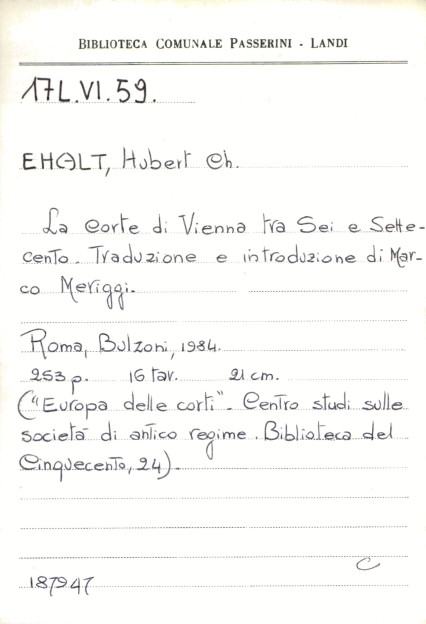 BIBLIOTECA COMUNALE PASSERINI - LANDI
17L.VI.59.
EHALT, Hubert Ch.
La corte di Vienna tra Sei e Sette-
cento. Traduzione e introduzione di Mar-
co Meriggi.
Roma, Bulzoni, 1984.
253 p. 16 tav. 21 cm.
("Europa delle corti". Centro studi sulle
società di antico regime. Biblioteca del
Cinquecento, 24).
C
187947